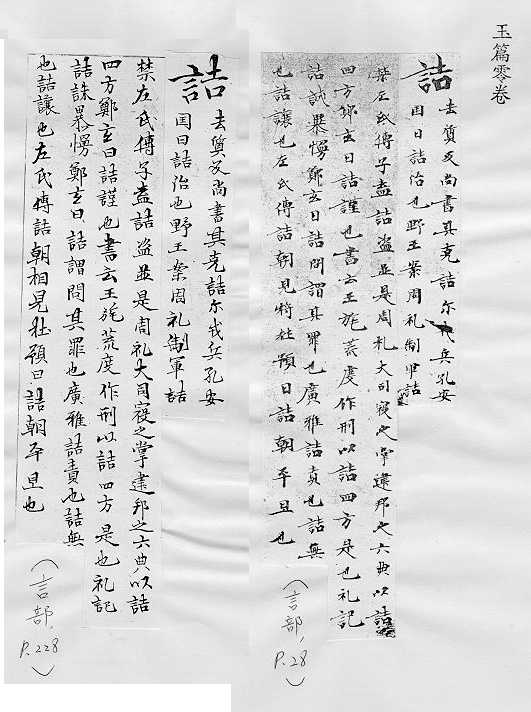 玉篇零卷
詰 去質反尚書其克詰尔戎兵孔安
国曰詰治也野王案周礼制軍詰
禁左氏傳子盍詰盗並是周礼大司寇之掌建邦之六典以詰
四方鄭玄曰詰謹也書云王旄荒度作刑以詰四方是也礼記
詰誅暴慢鄭玄曰詰問謂其罪也廣雅詰責也詰無
也詰讓也左氏傳詰朝見将杜預曰詰朝平旦也
(言部, P.28)
詰 去質反尚書其克詰尔戎兵孔安
国曰詰治也野王案周礼制軍詰
禁左氏傳子盍詰盗並是周礼大司寇之掌建邦之六典以詰
四方鄭玄曰詰謹也書云王旄荒度作刑以詰四方是也礼記
詰誅暴慢鄭玄曰詰謂問其罪也廣雅詰責也詰無
也詰讓也左氏傳詰朝相見杜預曰詰朝平旦也
(言部, P.228)